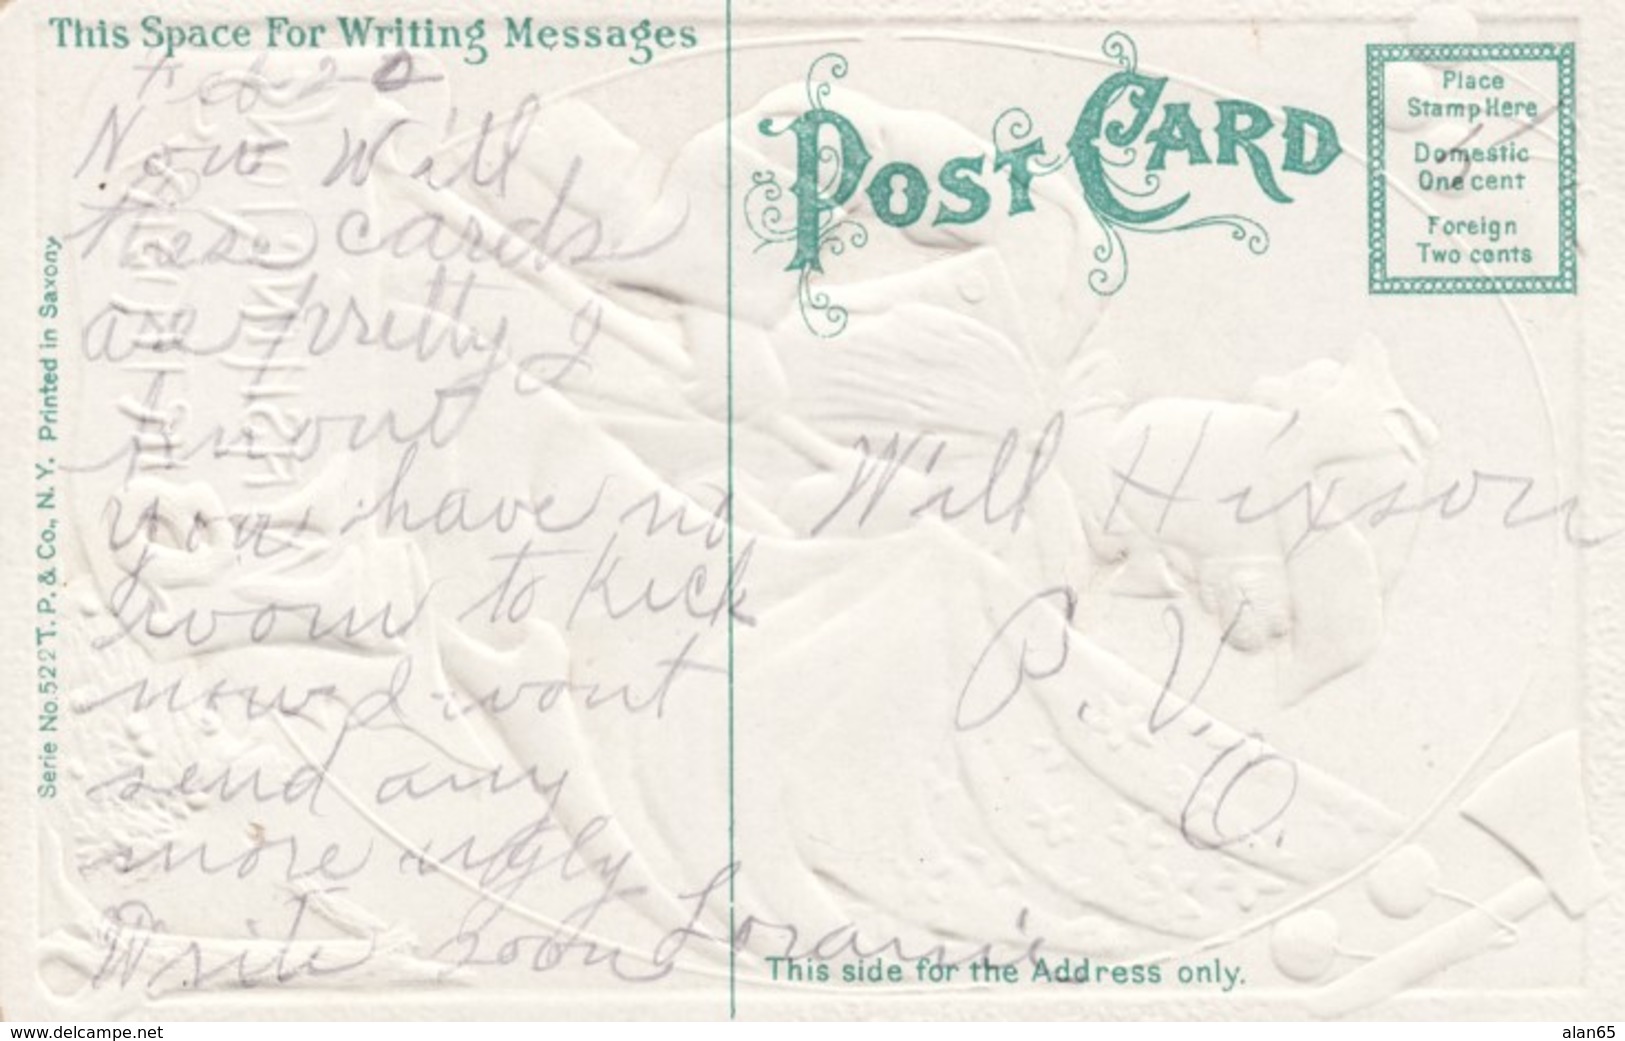 This Space For Writing Messages
Feb 22
Now Will
these cards
are pretty I
wont
you have no
room to Kick
now I wont
send any
more ugly
Write soon Loranie
Serie No. 522 T. P. & Co., N. Y. Printed in Saxony
POST CARD
Place
Stamp Here
Domestic
One cent
Foreign
Two cents
Will Hixson
P. V.
O.
This side for the Address only.
www.delcampe.net
alan65